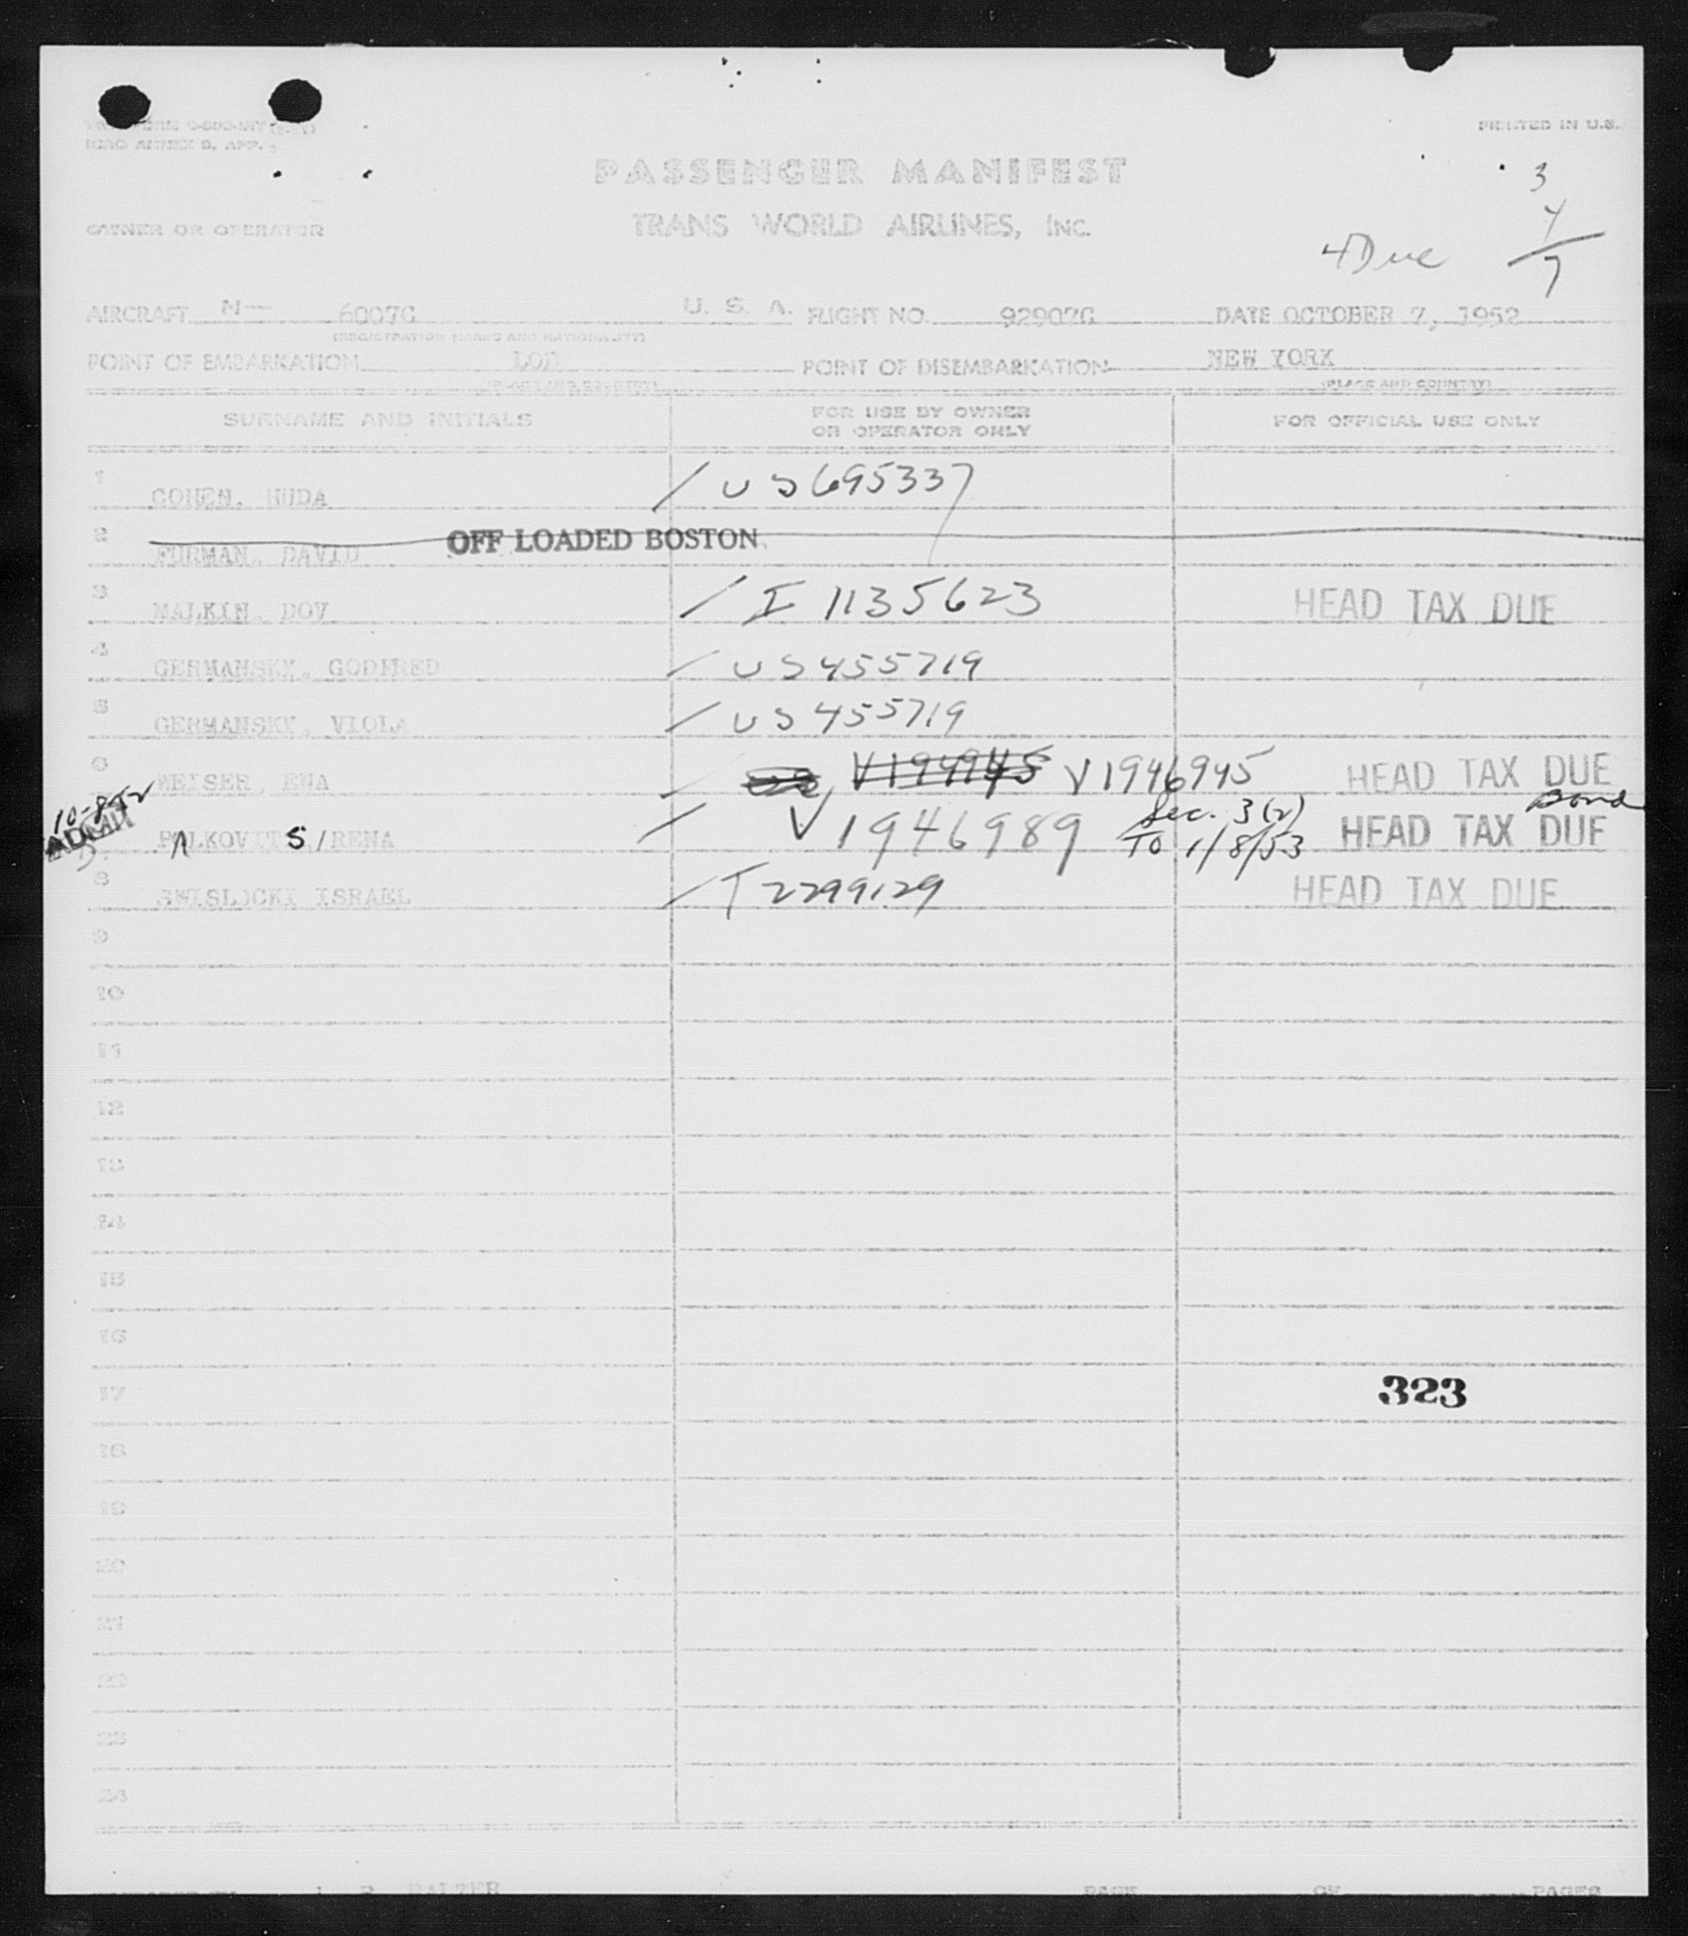 ICAO ANNEX 9, APP.
PRINTED IN U.S.
PASSENGER MANIFEST
3
4
7
OWNER OR OPERATOR
TRANS WORLD AIRLINES, INC.
4 Due
AIRCRAFT N— 6007C U. S. A. FLIGHT NO. 92907G DATE OCTOBER 7, 1952
(REGISTRATION MARKS AND NATIONALITY)
POINT OF EMBARKATION LOD POINT OF DISEMBARKATION NEW YORK
(PLACE AND COUNTRY) (PLACE AND COUNTRY)
SURNAME AND INITIALS FOR USE BY OWNER OR OPERATOR ONLY FOR OFFICIAL USE ONLY
1 COHEN, HUDA / US 695337
2 FURMAN, DAVID OFF LOADED BOSTON
3 MALKIN, DOV / I 1135623 HEAD TAX DUE
4 GERMANSKY, GODFRED / US 455719
5 GERMANSKY, VIOLA / US 455719
6 WEISER, EWA / V194945 V1946945 HEAD TAX DUE
10-8-52 ADMIT S/RENA / V1946989 Sec. 3(2) To 1/8/53 HEAD TAX DUE Bond
8 ISRAEL / T 2299129 HEAD TAX DUE
9
10
11
12
13
14
15
16
17 323
18
19
20
21
22
23
24
BALTER PAGE OF PAGES